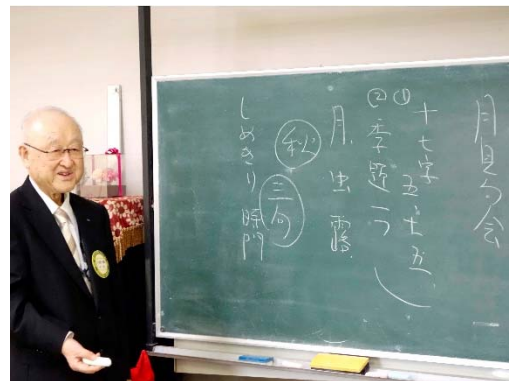 月見句会
① 十七字 五・七・五
② 季題一つ
月 虫 露
秋 三句
しめきり 時間